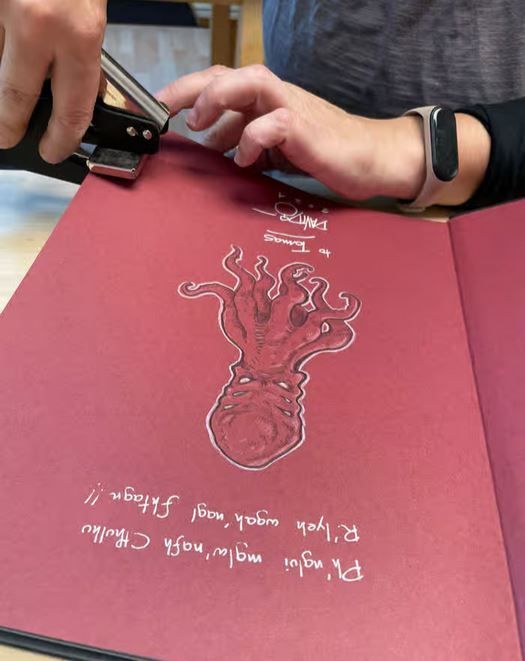 Ph'nglui mglw'nafh Cthulhu
R'lyeh wgah'nagl fhtagn!!
to Tomas